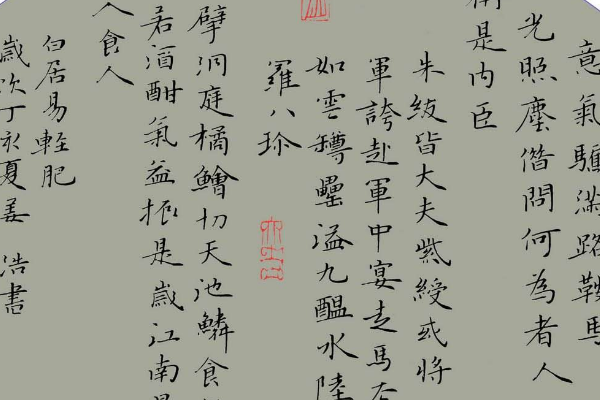 意氣驕滿路鞍馬
光照塵借問何為者人
是内臣
朱紱皆大夫紫綬或將
軍誇赴軍中宴走馬去
如雲罇罍溢九醖水陸
羅八珍
擘洞庭橘鱠切天池鱗食
若酒酣氣益振是歲江南
人食人
白居易輕肥
歲次丁亥夏姜浩書